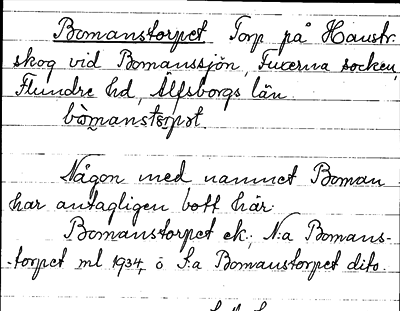 Bomanstorpet Torp på Haustr.
skog vid Bomanssjön, Fuxerna socken,
Flundre hd, Älfsborgs län.
bòmanstɷrpət.
Någon med namnet Boman
har antagligen bott här.
Bomanstorpet ek; N:a Bomans-
-torpet ml 1934, o S:a Bomanstorpet dito.